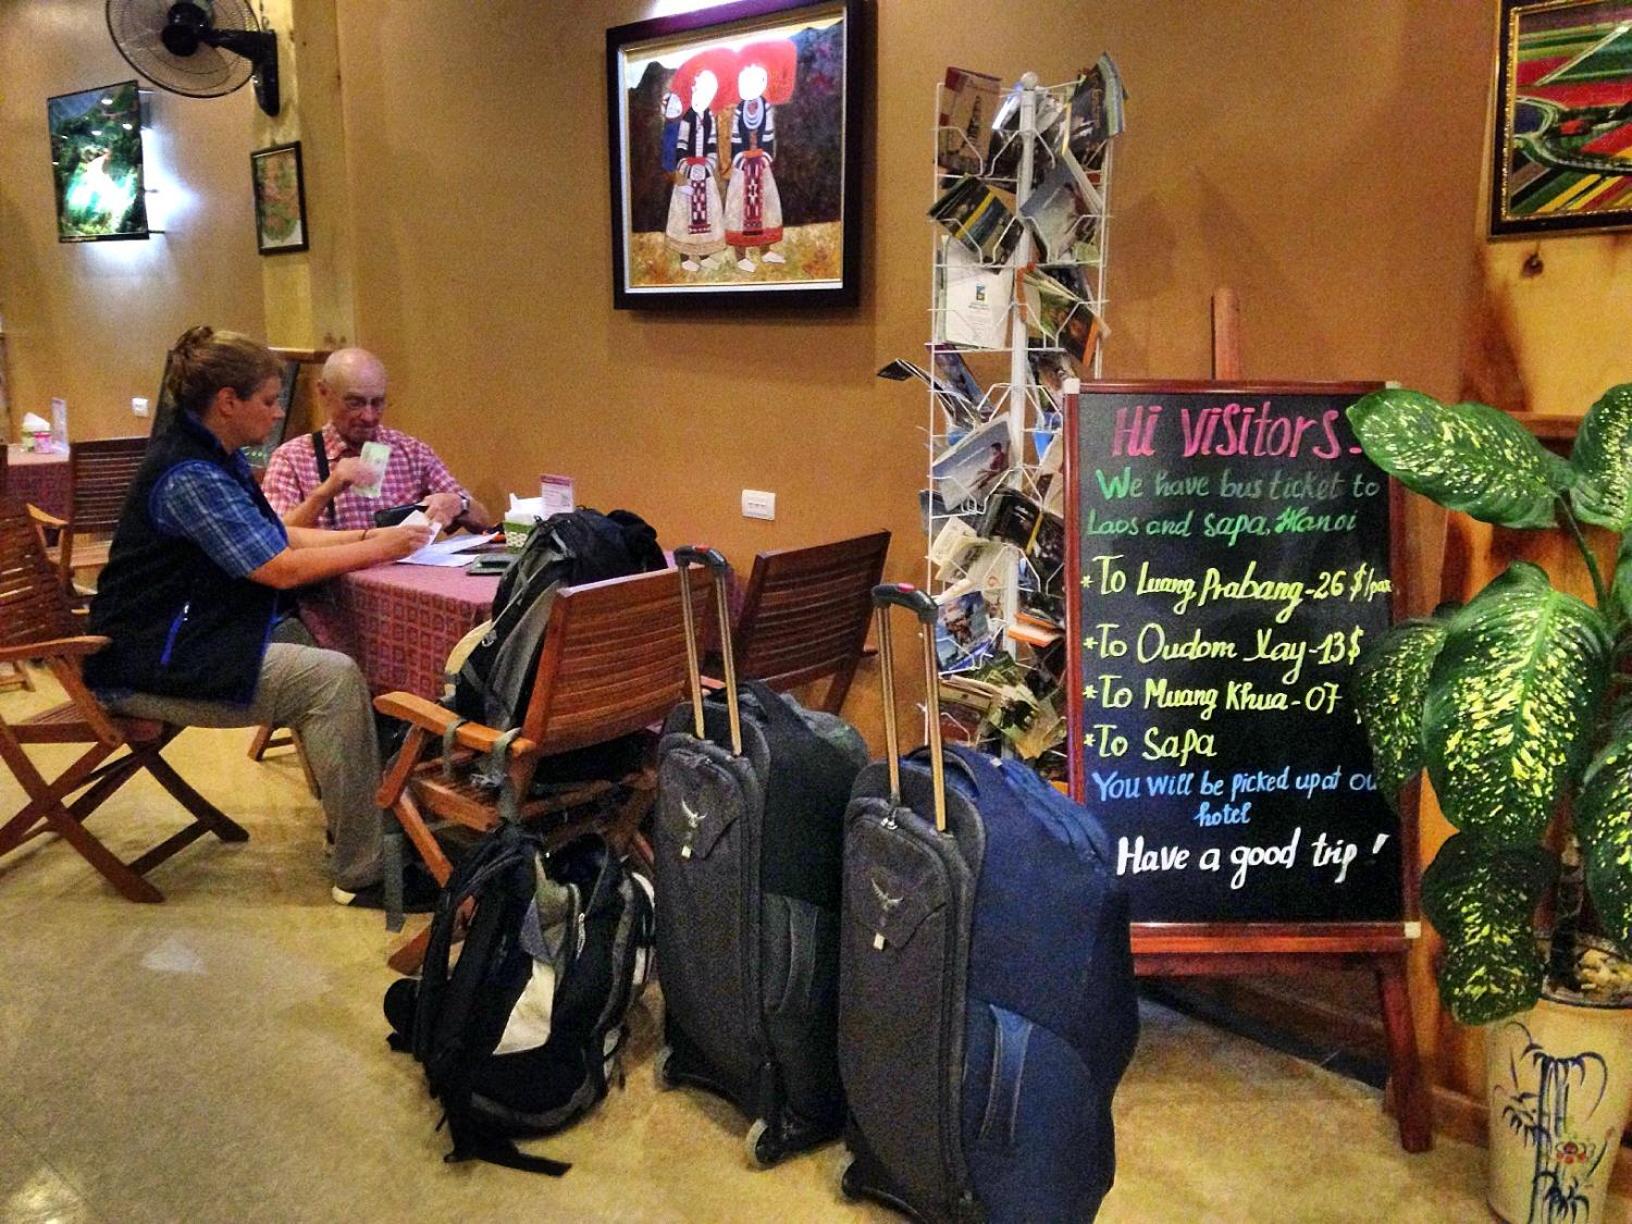 Hi Visitors-
We have bus ticket to
Laos and Sapa, Hanoi
*To Luang Prabang-26 $/pax
*To Oudom Xay-13$
*To Muang Khua-07
*To Sapa
You will be picked up at
hotel
Have a good trip!